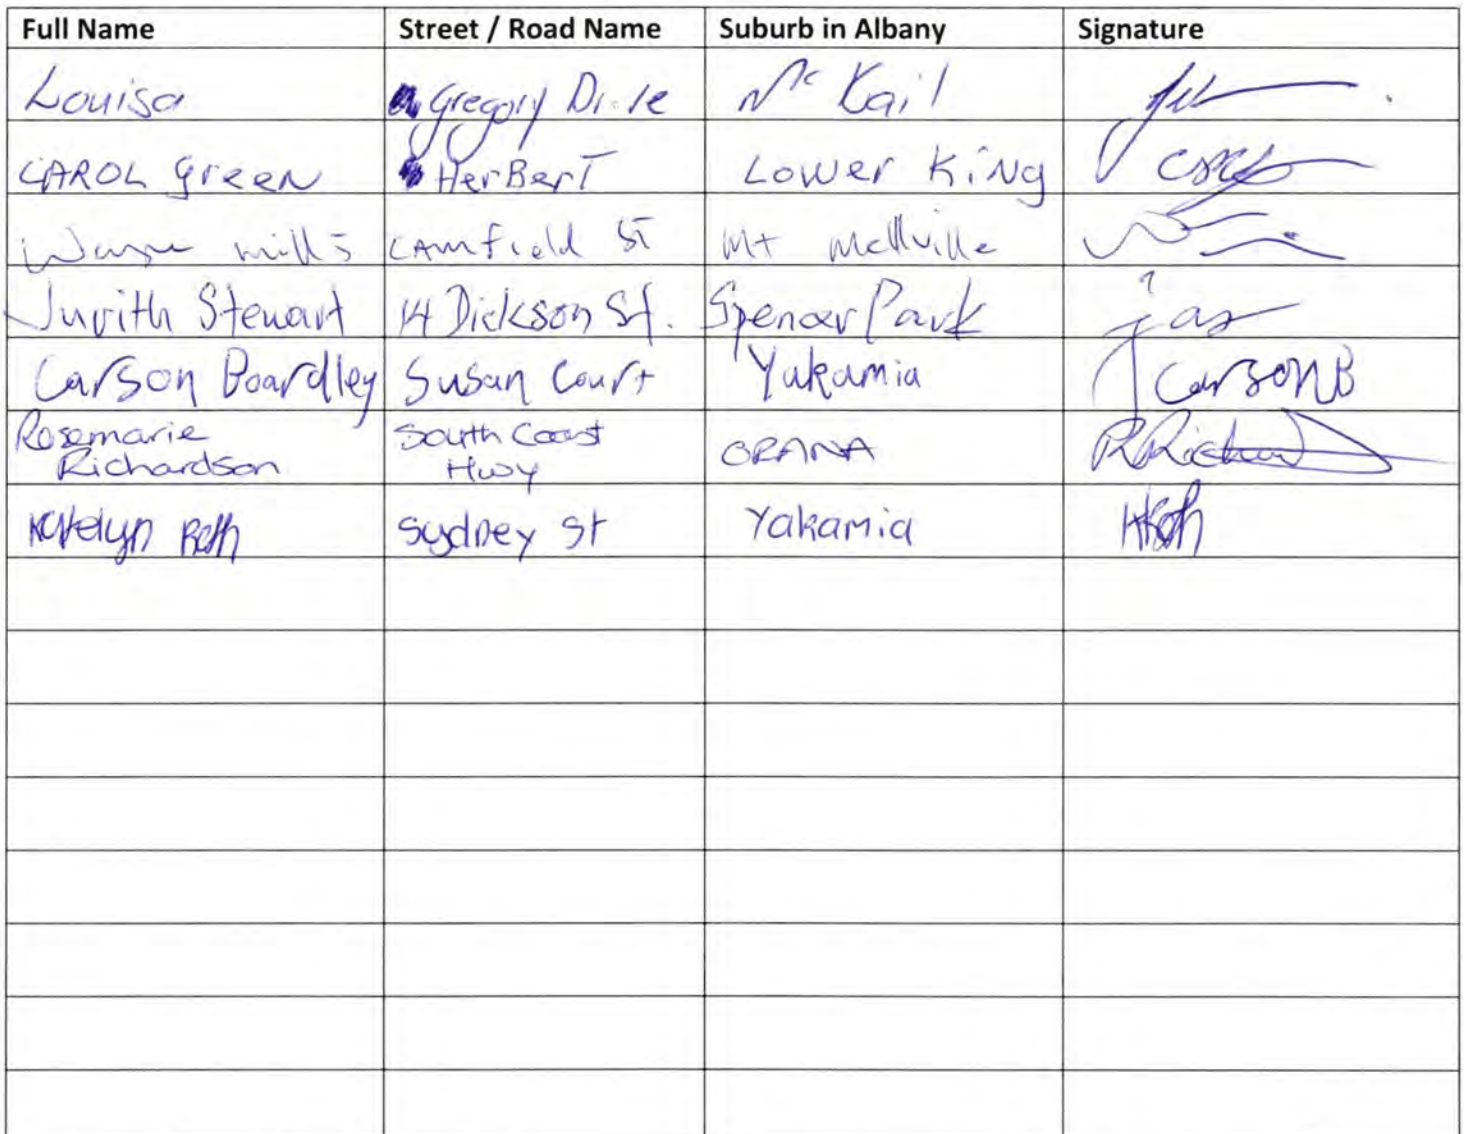 Full Name Street / Road Name Suburb in Albany Signature
Louisa Gregory Drive Mc Kail
CAROL Green HerBerT Lower King
Wayne mills CAmfield ST Mt Mellville
Judith Stewart 14 Dickson St. Spencer Park jas
Carson Boardley Susan Court Yakamia CarsonB
Rosemarie South Coast ORANA RRichard
Richardson Hwy
Katelyn Roth Sydney St Yakamia KRoth